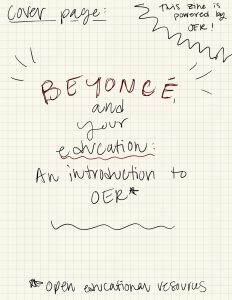 Cover page:
This zine is
powered by
OER!
BEYONCÉ,
and
your
education:
An introduction to
OER*
* Open educational resources